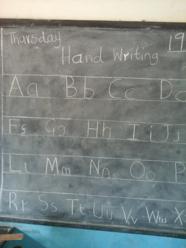 Thursday 19
Hand Writing
Aa Bb Cc D
Ff Gg Hh Ii Jj
Ll Mm Nn Oo P
Rr Ss Tt Uu Vv Ww X